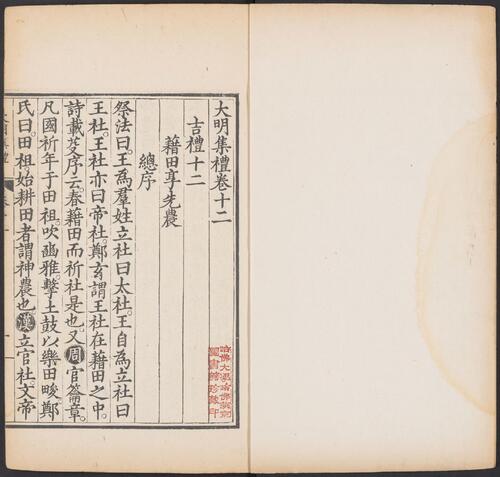 大明集禮卷十二
吉禮十二
藉田享先農
總序
祭法曰王為羣姓立社曰太社王自為立社曰
王社王社亦曰帝社鄭玄謂王社在藉田之中
詩載芟序云春藉田而祈社是也又周官籥章
凡國祈年于田祖吹豳雅擊土鼓以樂田畯鄭
氏曰田祖始耕田者謂神農也漢立官社文帝
哈佛大學哈佛燕京
圖書館珍藏印